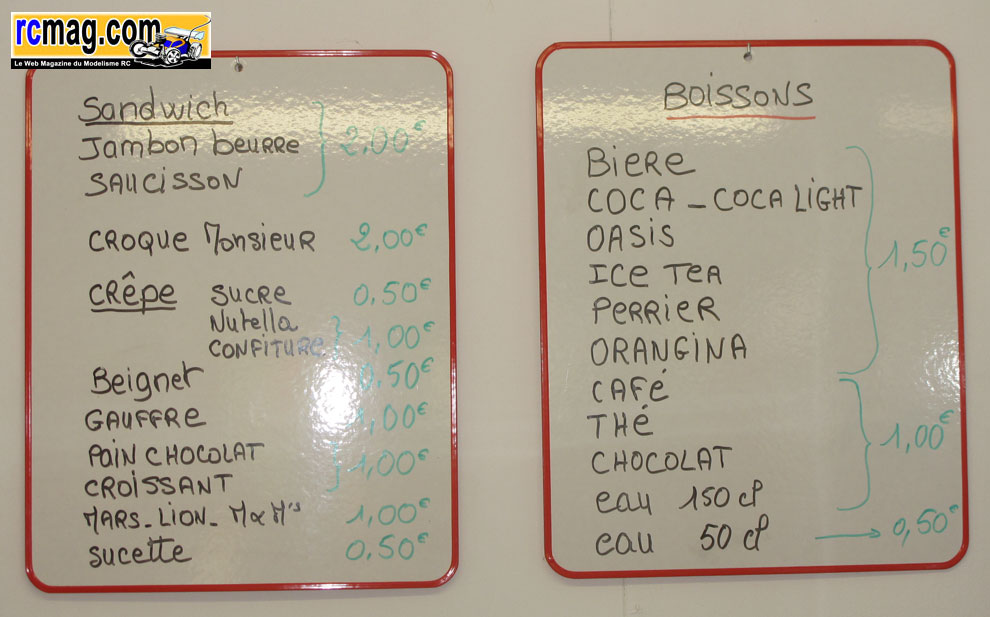 rcmag.com
Le Web Magazine du Modelisme RC
Sandwich
Jambon beurre 2,00€
SAUCISSON
CROQUE Monsieur 2,00€
CRÊPE SUCRE 0,50€
Nutella
CONFITURE 1,00€
Beignet 0,50€
GAUFFRE 1,00€
PAIN CHOCOLAT 1,00€
CROISSANT
MARS - LION - M & M's 1,00€
sucette 0,50€
BOISSONS
BIERE
COCA - COCA LIGHT
OASIS 1,50€
ICE TEA
PERRIER
ORANGINA
CAFÉ
THÉ 1,00€
CHOCOLAT
eau 150 cl
eau 50 cl → 0,50€